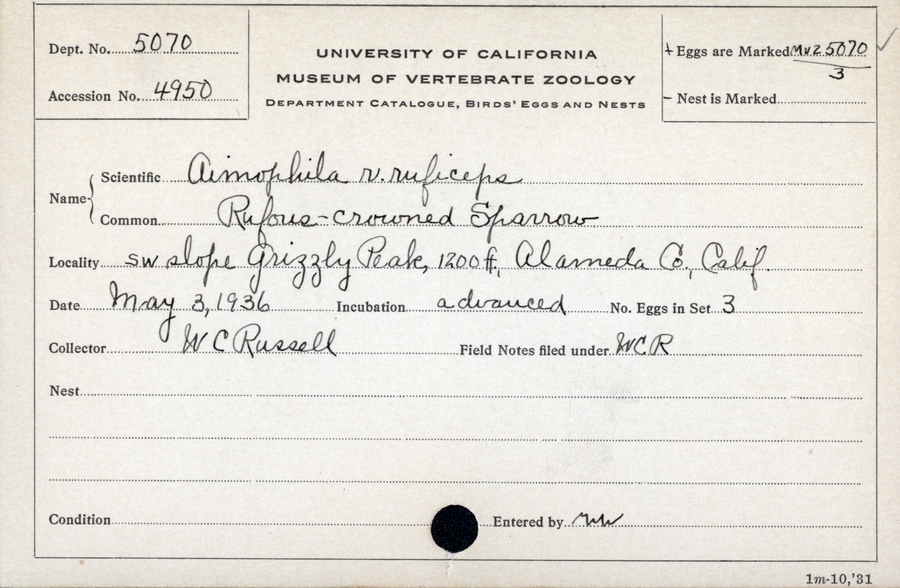 Dept. No. 5070
Accession No. 4950
UNIVERSITY OF CALIFORNIA
MUSEUM OF VERTEBRATE ZOOLOGY
DEPARTMENT CATALOGUE, BIRDS' EGGS AND NESTS
+ Eggs are Marked MVZ 5070 ✓
3
– Nest is Marked
Name { Scientific Aimophila r. ruficeps
Common Rufous-crowned Sparrow
Locality SW slope Grizzly Peak, 1200 ft, Alameda Co., Calif.
Date May 3, 1936 Incubation advanced No. Eggs in Set 3
Collector W C Russell Field Notes filed under WCR
Nest
Condition Entered by
1m-10,'31